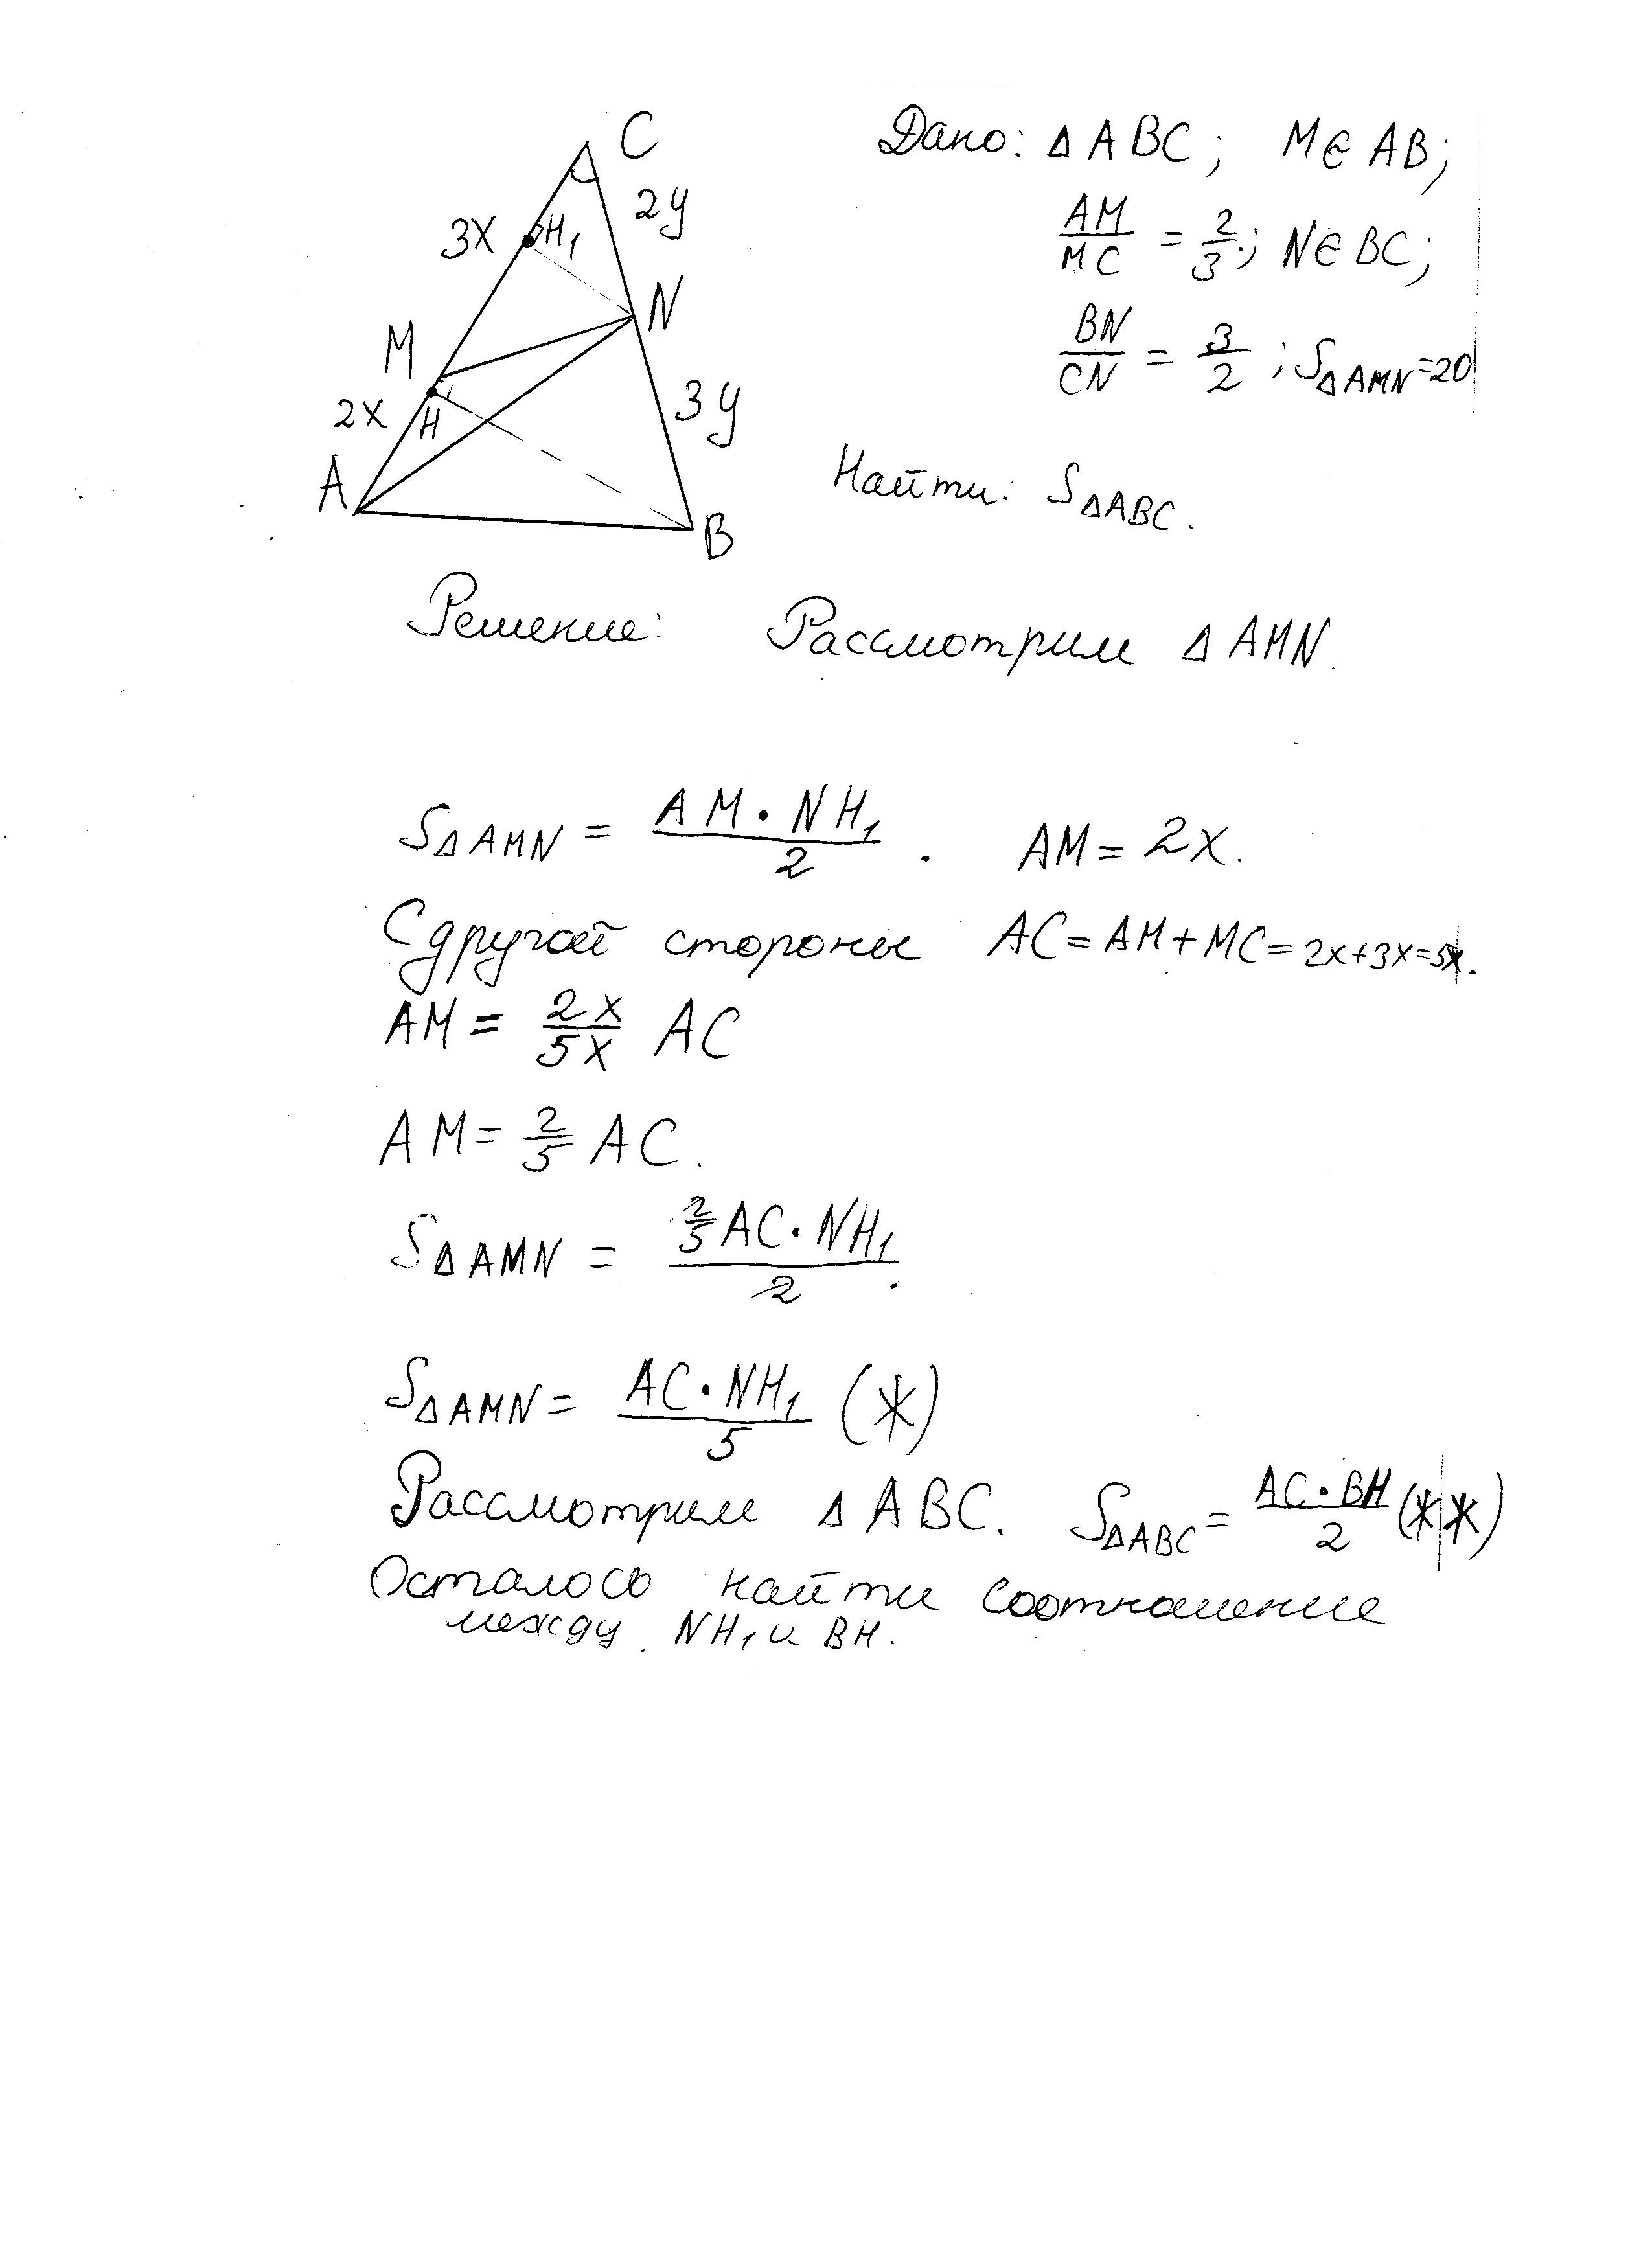 C
2y
3x
H₁
N
M
3y
2x
H
A
B
Дано: Δ ABC; M∈ AB;
AM/MC = 2/3; N∈ BC;
BN/CN = 3/2; SΔAMN=20
Найти: SΔABC.
Решение: Рассмотрим Δ AMN.
SΔAMN = AM·NH₁/2. AM = 2x.
С другой стороны AC = AM+MC = 2x+3x=5x.
AM = 2x/5x AC
AM = 2/5 AC.
SΔAMN = 2/5 AC·NH₁/2.
SΔAMN = AC·NH₁/5 (*)
Рассмотрим Δ ABC. SΔABC = AC·BH/2 (**)
Осталось найти соотношение
между NH₁ и BH.